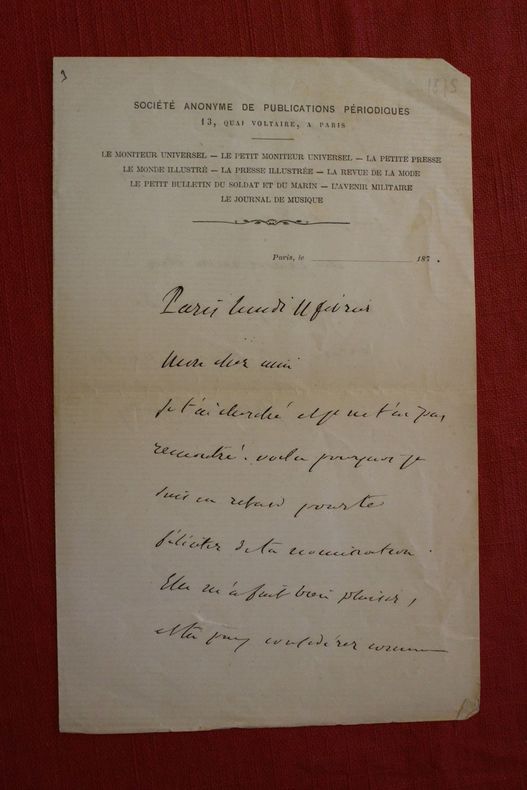 SOCIÉTÉ ANONYME DE PUBLICATIONS PÉRIODIQUES
13, QUAI VOLTAIRE, A PARIS
LE MONITEUR UNIVERSEL — LE PETIT MONITEUR UNIVERSEL — LA PETITE PRESSE
LE MONDE ILLUSTRÉ — LA PRESSE ILLUSTRÉE — LA REVUE DE LA MODE
LE PETIT BULLETIN DU SOLDAT ET DU MARIN — L'AVENIR MILITAIRE
LE JOURNAL DE MUSIQUE
Paris, le 187 .
Paris lundi 11 février
Mon cher ami
Je t'ai cherché et je ne t'ai pas
rencontré. voilà pourquoi je
suis en retard pour te
féliciter de ta nomination.
Elle m'a fait bien plaisir,
et tu peux considérer comme